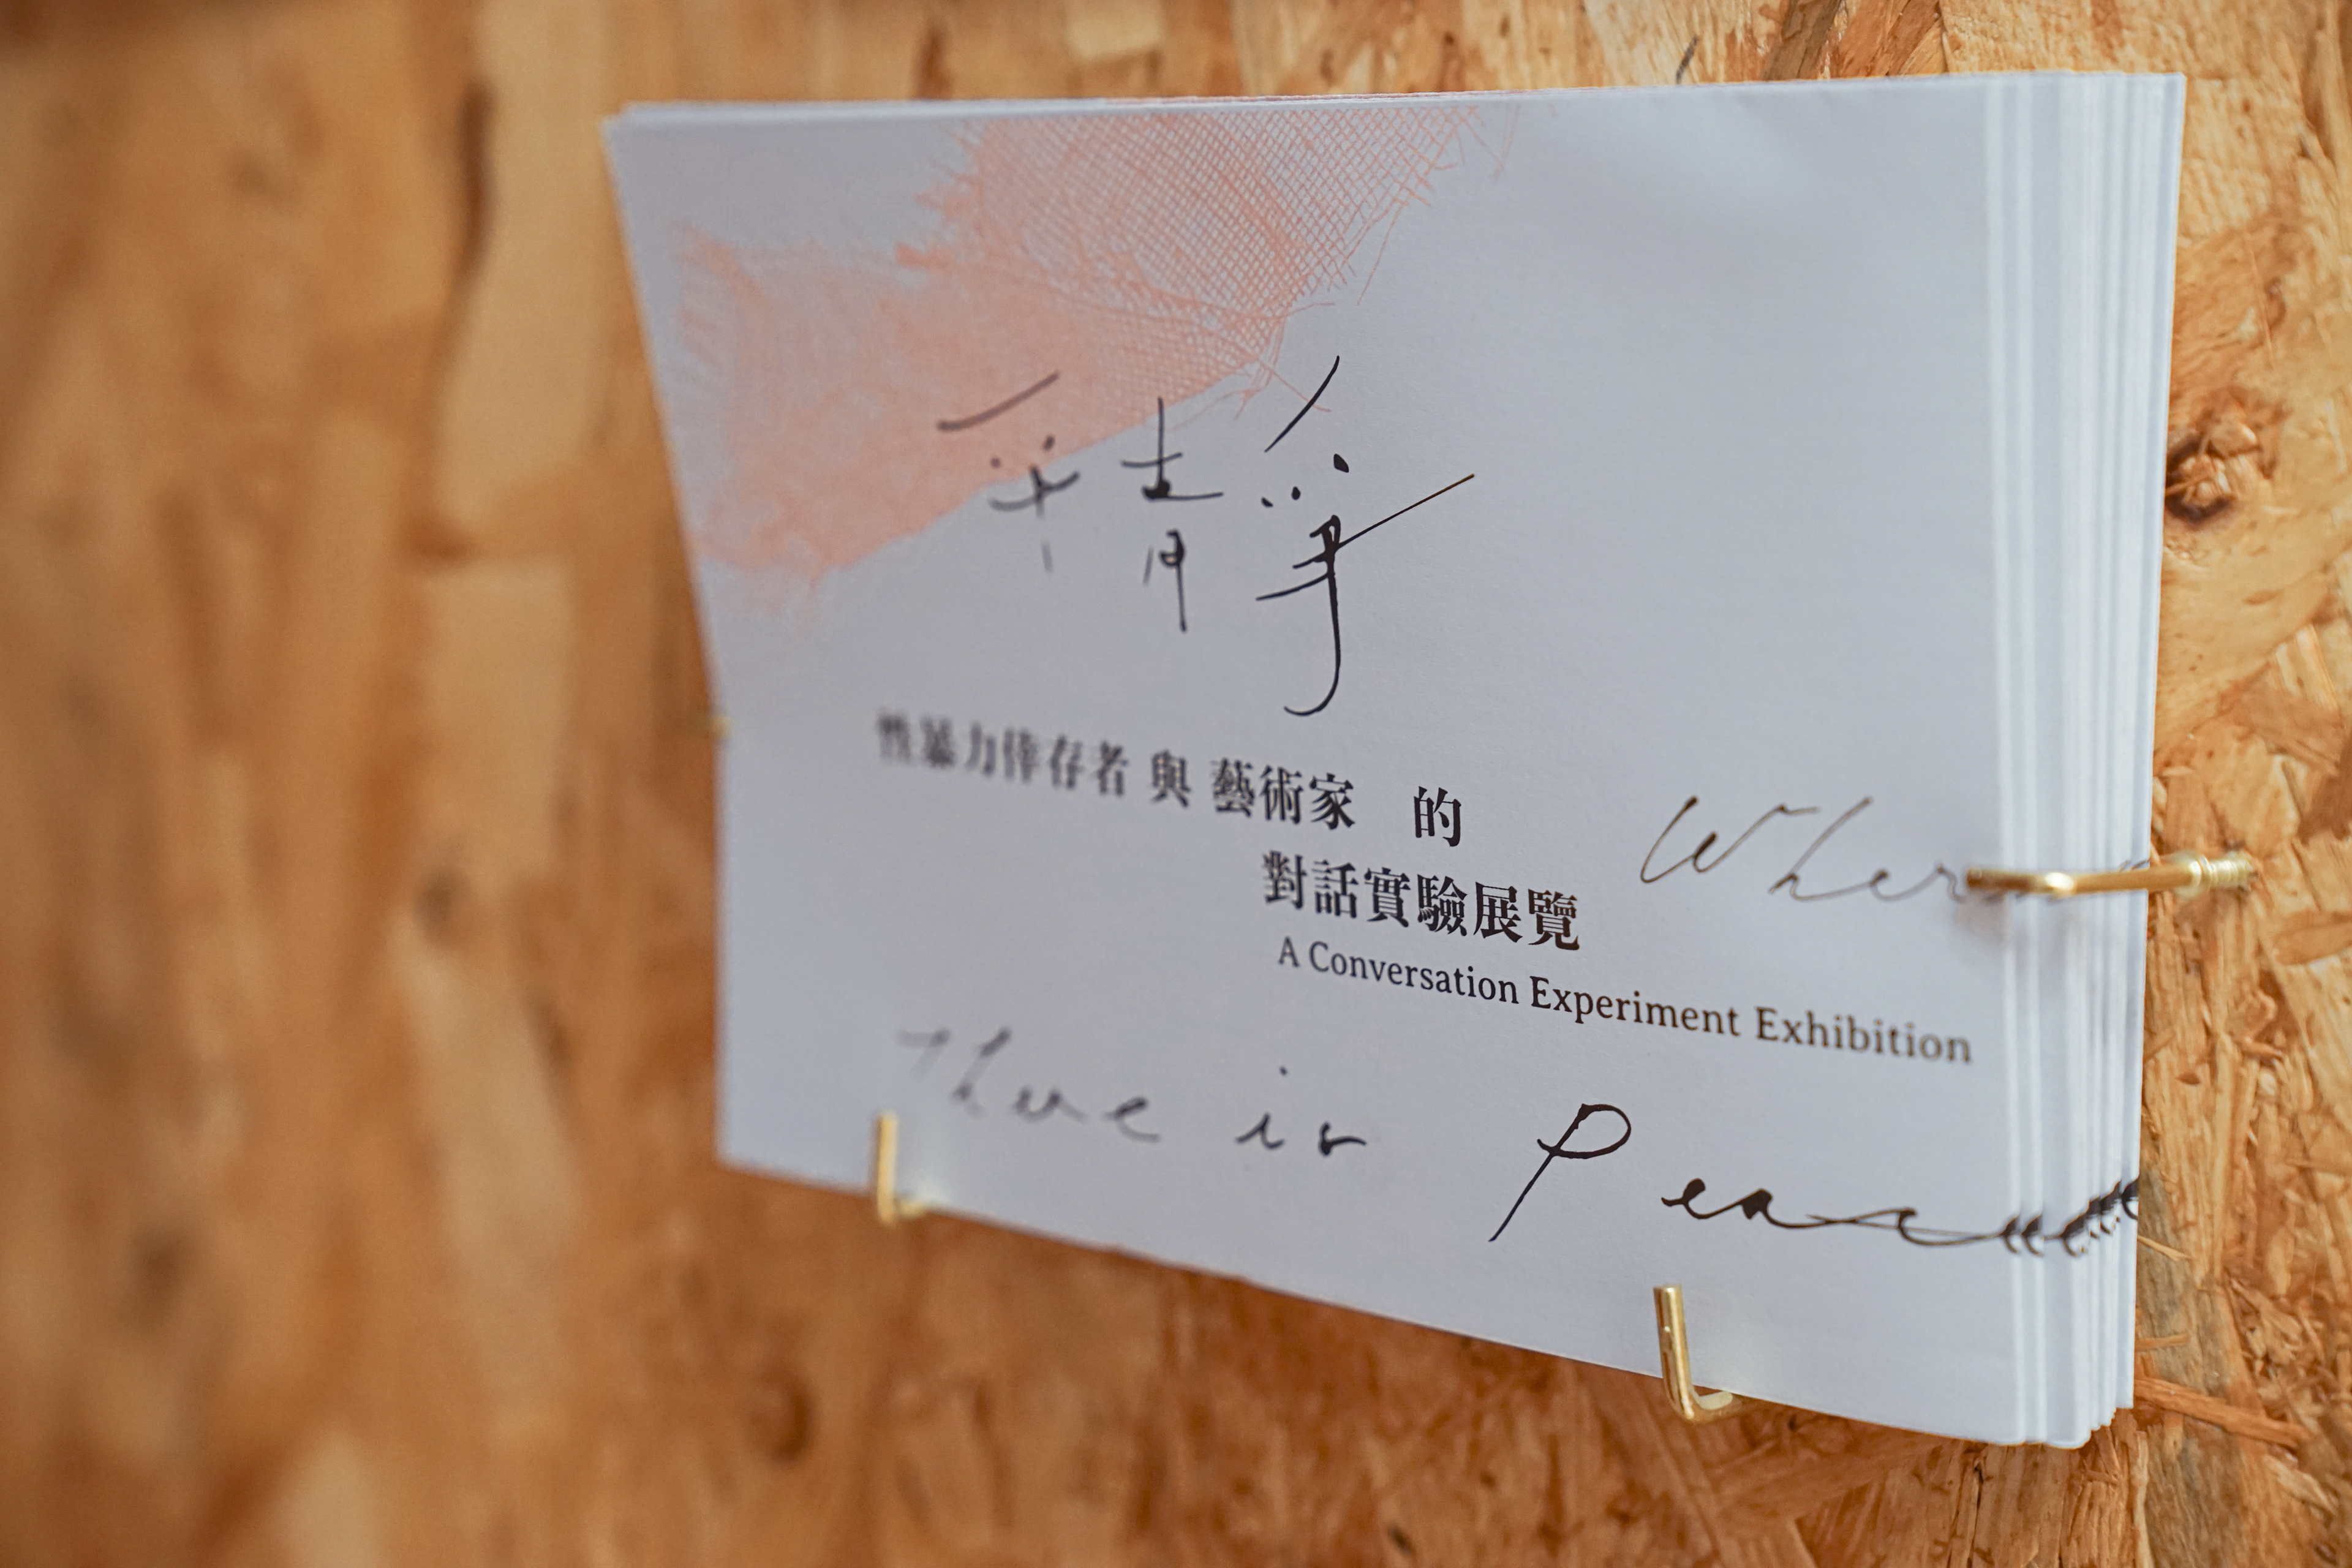 平靜
性暴力倖存者 與 藝術家 的
Where
對話實驗展覽
A Conversation Experiment Exhibition
There is Peace